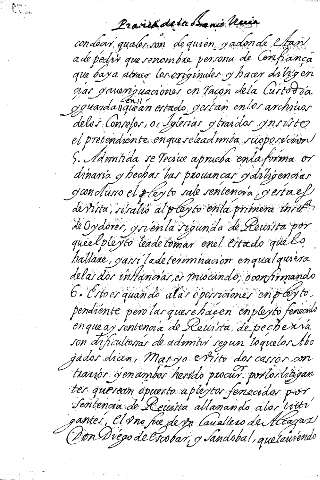 Practica de la Chancilleria
con decir, quales son de quien, y adonde estan
a de pedir que se nombre persona de confiança
que baya a traer los originales y hacer diligen
çias y averiguaciones en raçon de la Custodia
y guarda con q̃ han estado, y estan en los archivos
de los Consejos, o Iglesias y traidos y visto
el pretendiente en que se le admita, su oposicion
5. Admitida se recive a prueba en la forma or
dinaria y hechas las provanças y diligencias
y concluso el pleyto sale sentencia, y esta es
de vista, si salió al pleyto en la primera inst.ª
de Oydores, y si en la segunda de Revista por
que el pleyto le a de tomar en el estado que lo
hallare, y assi la determinacion en qualquiera
de las dos instancias, es revocando, o confirmando
6. Esto es quando a las oposiciones en pleyto
pendiente pero las que se hacen en pleyto fenecido
en que ay sentencia de Revista, de pecheria
son dificultosas de admitir segun lo que los Abo
gados dicen, Mas yo e visto dos casos con
trarios y en ambos hersido procur.ʳ por los litigan
tes que se an opuesto a pleytos fenecidos por
Sentencia de Revista allanando a los liti
gantes, El uno fue de un Cavallero de Alcazar
Don Diego de Escobar, y Sandobal, que haviendo